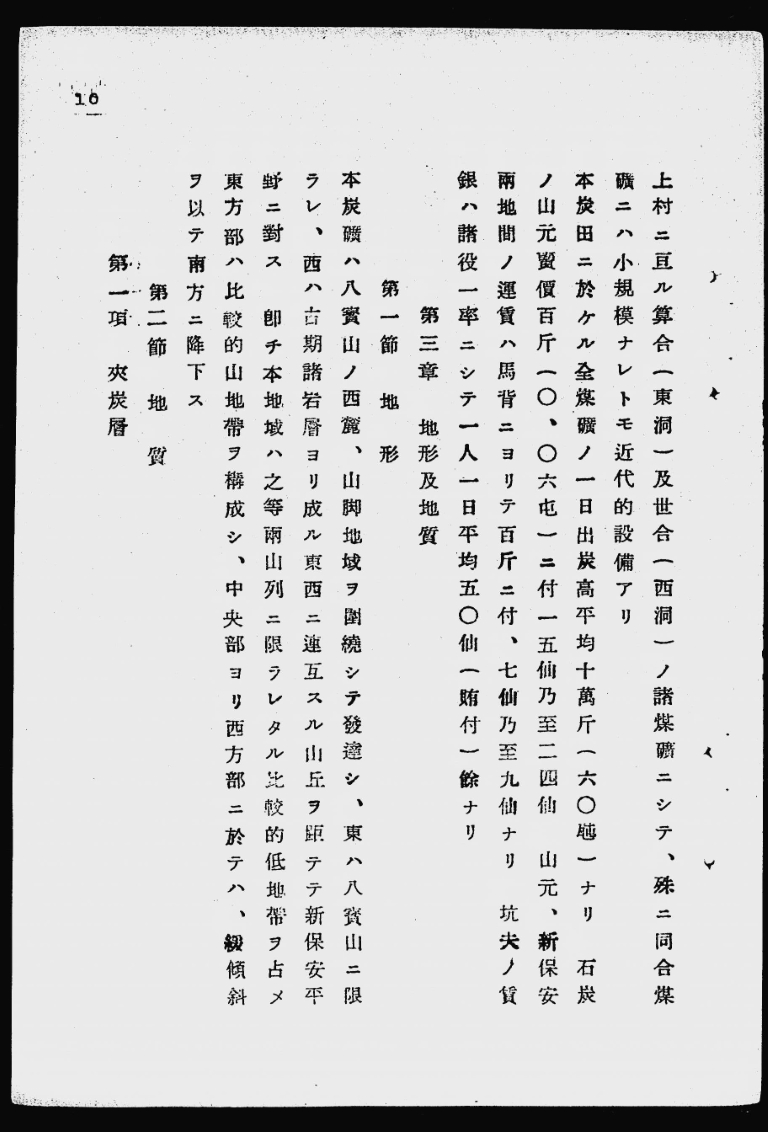 10
上村ニ亘ル算合(東洞)及世合(西洞)ノ諸煤礦ニシテ、殊ニ同合煤
礦ニハ小規模ナレトモ近代的設備アリ
本炭田ニ於ケル全煤礦ノ一日出炭高平均十萬斤(六〇瓲)ナリ 石炭
ノ山元賣價百斤(〇、〇六屯)ニ付一五仙乃至二四仙 山元、新保安
兩地間ノ運賃ハ馬背ニヨリテ百斤ニ付、七仙乃至九仙ナリ 坑夫ノ賃
銀ハ諸役一率ニシテ一人一日平均五〇仙(賄付)餘ナリ
第三章 地形及地質
第一節 地形
本炭礦ハ八寶山ノ西麓、山脚地域ヲ圍繞シテ發達シ、東ハ八寶山ニ限
ラレ、西ハ古期諸岩層ヨリ成ル東西ニ連互スル山丘ヲ距テテ新保安平
野ニ對ス 卽チ本地域ハ之等兩山列ニ限ラレタル比較的低地帶ヲ占メ
東方部ハ比較的山地帶ヲ構成シ、中央部ヨリ西方部ニ於テハ、緩傾斜
ヲ以テ南方ニ降下ス
第二節 地質
第一項 夾炭層